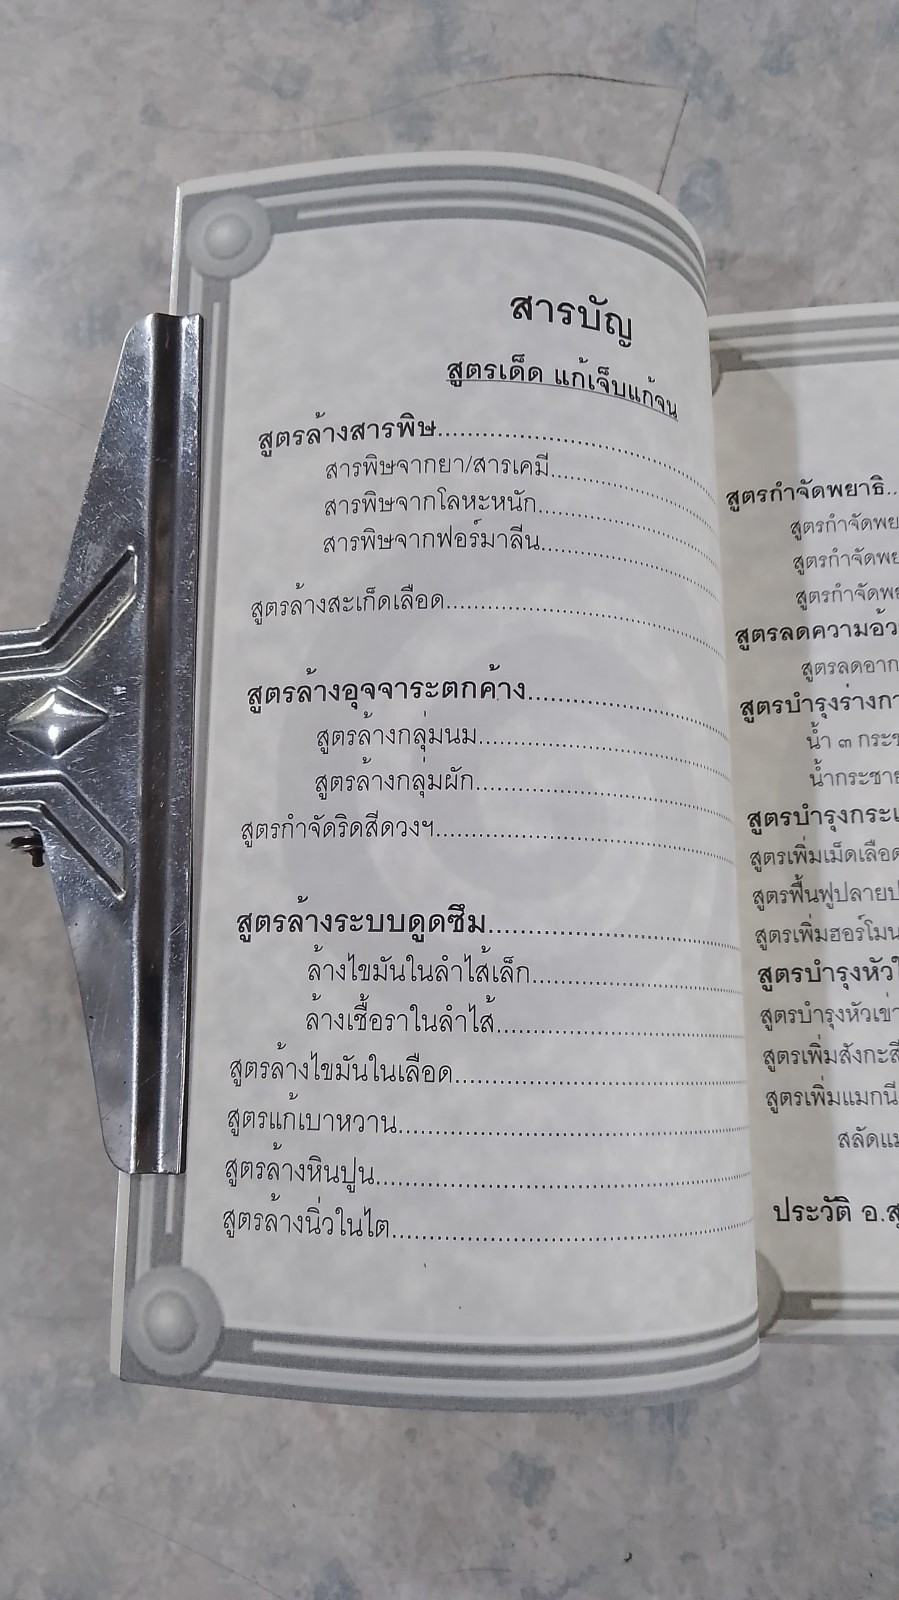 สารบัญ
สูตรเด็ด แก้เจ็บแก้จน
สูตรล้างสารพิษ
สารพิษจากยา/สารเคมี
สารพิษจากโลหะหนัก
สารพิษจากฟอร์มาลีน
สูตรล้างสะเก็ดเลือด
สูตรล้างอุจจาระตกค้าง
สูตรล้างกลุ่มนม
สูตรล้างกลุ่มผัก
สูตรกำจัดริดสีดวงฯ
สูตรล้างระบบดูดซึม
ล้างไขมันในลำไส้เล็ก
ล้างเชื้อราในลำไส้
สูตรล้างไขมันในเลือด
สูตรแก้เบาหวาน
สูตรล้างหินปูน
สูตรล้างนิ่วในไต
สูตรกำจัดพยาธิ
สูตรกำจัดพย
สูตรกำจัดพย
สูตรกำจัดพย
สูตรลดความอ้ว
สูตรลดอาก
สูตรบำรุงร่างกา
น้ำ ๓ กระช
น้ำกระชาย
สูตรบำรุงกระเ
สูตรเพิ่มเม็ดเลือด
สูตรฟื้นฟูปลายป
สูตรเพิ่มฮอร์โมน
สูตรบำรุงหัวใ
สูตรบำรุงหัวเข่า
สูตรเพิ่มสังกะสี
สูตรเพิ่มแมกนี
สลัดแ
ประวัติ อ.สุ